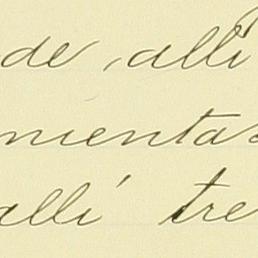 de, alli
mentas
alli tre